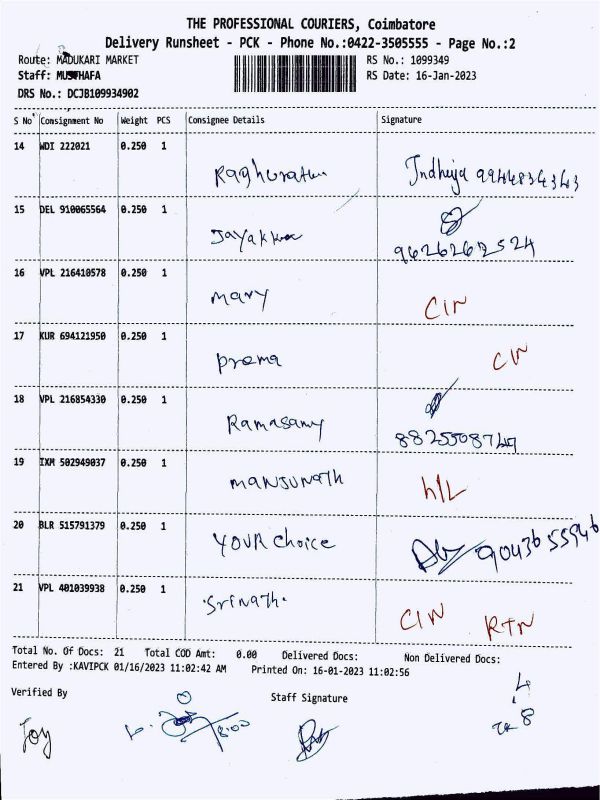 THE PROFESSIONAL COURIERS, Coimbatore
Delivery Runsheet - PCK - Phone No.:0422-3505555 - Page No.:2
Route: MADUKARI MARKET RS No.: 1099349
Staff: MUSTHAFA RS Date: 16-Jan-2023
DRS No.: DCJB109934902
S No Consignment No Weight PCS Consignee Details Signature
14 WDI 222021 0.250 1
Raghurathu Indhuja 9944834343
15 DEL 910065564 0.250 1
Jayakka 9626262524
16 VPL 216410578 0.250 1
Mary CIN
17 KUR 694121950 0.250 1
Prema CIN
18 VPL 216854330 0.250 1
Ramasamy 8825508749
19 IXM 502949037 0.250 1
MANJUNATH h/L
20 BLR 515791379 0.250 1
YOUR choice 9043655946
21 VPL 401039938 0.250 1
Srinath. CIN RTN
Total No. Of Docs: 21 Total COD Amt: 0.00 Delivered Docs: Non Delivered Docs:
Entered By :KAVIPCK 01/16/2023 11:02:42 AM Printed On: 16-01-2023 11:02:56
Verified By Staff Signature
Joy